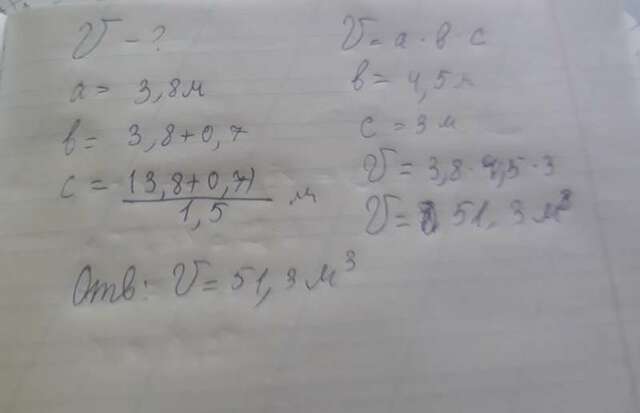 V - ?
a = 3,8 м
в = 3,8 + 0,7
с = (3,8 + 0,7) / 1,5 м
V = a · в · с
в = 4,5 м
с = 3 м
V = 3,8 · 4,5 · 3
V = 51,3 м³
Отв: V = 51,3 м³